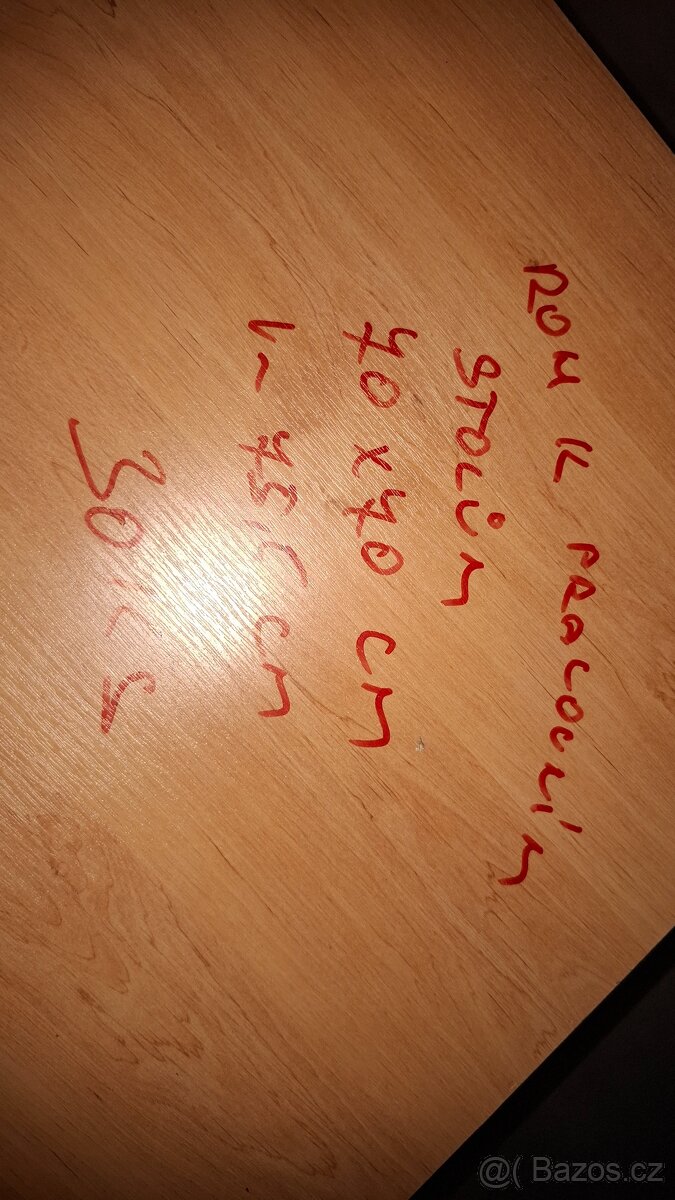 ROH K PRACOVNÍM
STOLŮM
70 x 70 CM
75,5 CM
30
@( Bazos.cz